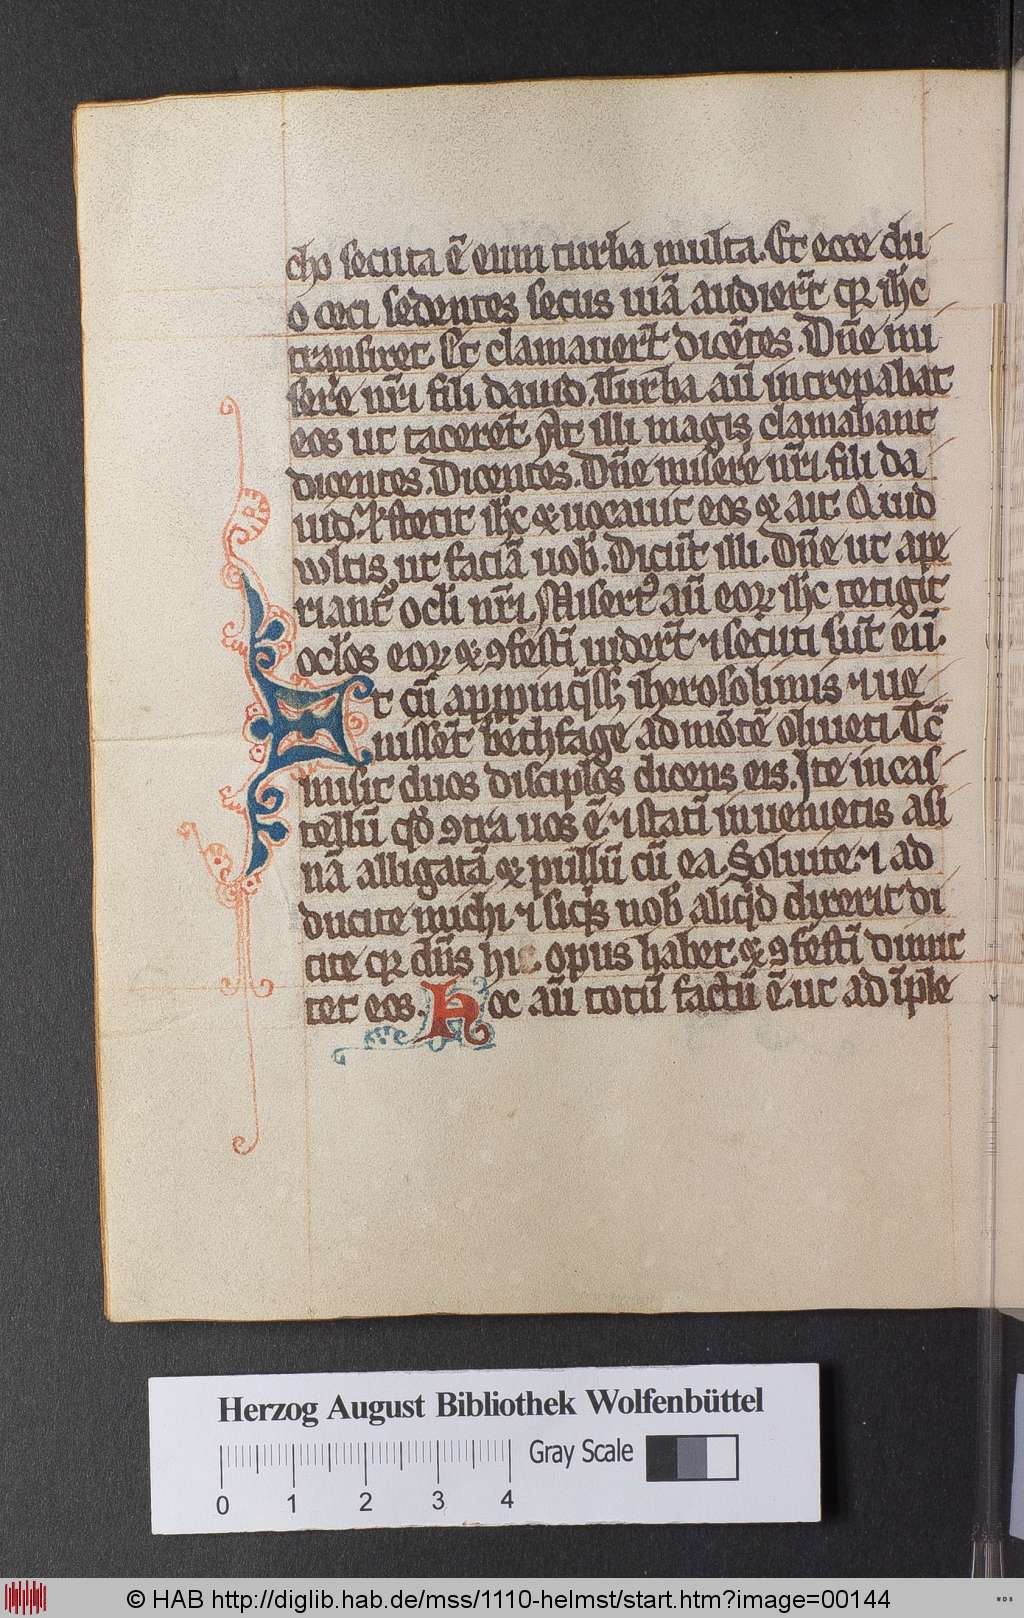 cho secuta ē eum turba multa. Et ecce du
o ceci sedentes secus uiā audierūt qꝛ ihc
transiret. Et clamauerūt dicētes. Dn̄e mi
serere nr̄i fili dauid. Turba aū increpabat
eos ut tacerēt. At illi magis clamabant
dicentes. Dicentes. Dn̄e miserere nr̄i. fili da
uid. ⁊ stetit ihc ⁊ uocauit eos ⁊ ait. Quid
wltis ut faciā uob̄. Dicūt illi. Dn̄e ut ape
riant᷑ ocl̄i nr̄i. Misertꝰ aū eoꝝ ihc tetigit
ocl̄os eoꝝ ⁊ ꝯfestī uiderūt ⁊ secuti sūt eū.
Et cū appinq̄ssꝫ iherosolimis ⁊ ue
nissēt bethfage ad mōtē oliueti. Tc̄
misit duos discipl̄os dicens eis. Ite in cas
tellū qd̄ ꝯtra uos ē ⁊ statī inuenietis asi
nā alligatā ⁊ pullū cū ea. Soluite ⁊ ad
ducite michi ⁊ siq̄s uob̄ aliq̄d dixerit di
cite qꝛ dn̄s hic opus habet. ⁊ ꝯfestī dimit
tet eos. Hoc aū totū factū ē ut adīple
Herzog August Bibliothek Wolfenbüttel
Gray Scale
0 1 2 3 4
© HAB http://diglib.hab.de/mss/1110-helmst/start.htm?image=00144